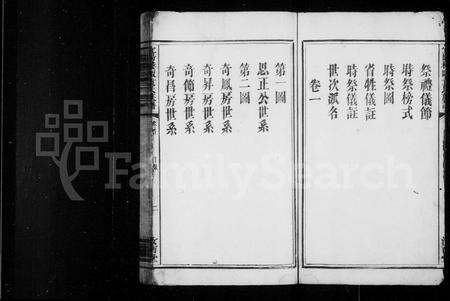 祭禮儀節
時祭榜式
時祭圖
省牲儀註
時祭儀註
世次派名
卷一
第一圖
思正公世系
第二圖
奇鳳房世系
奇昇房世系
奇節房世系
奇昌房世系
FamilySearch